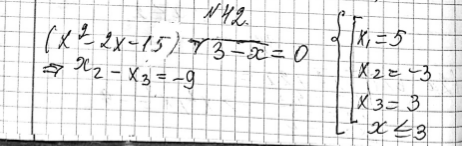 №42.
(x²-2x-15) √3-x = 0
⇒ x₂ - x₃ = -9
x₁ = 5
x₂ = -3
x₃ = 3
x ≤ 3